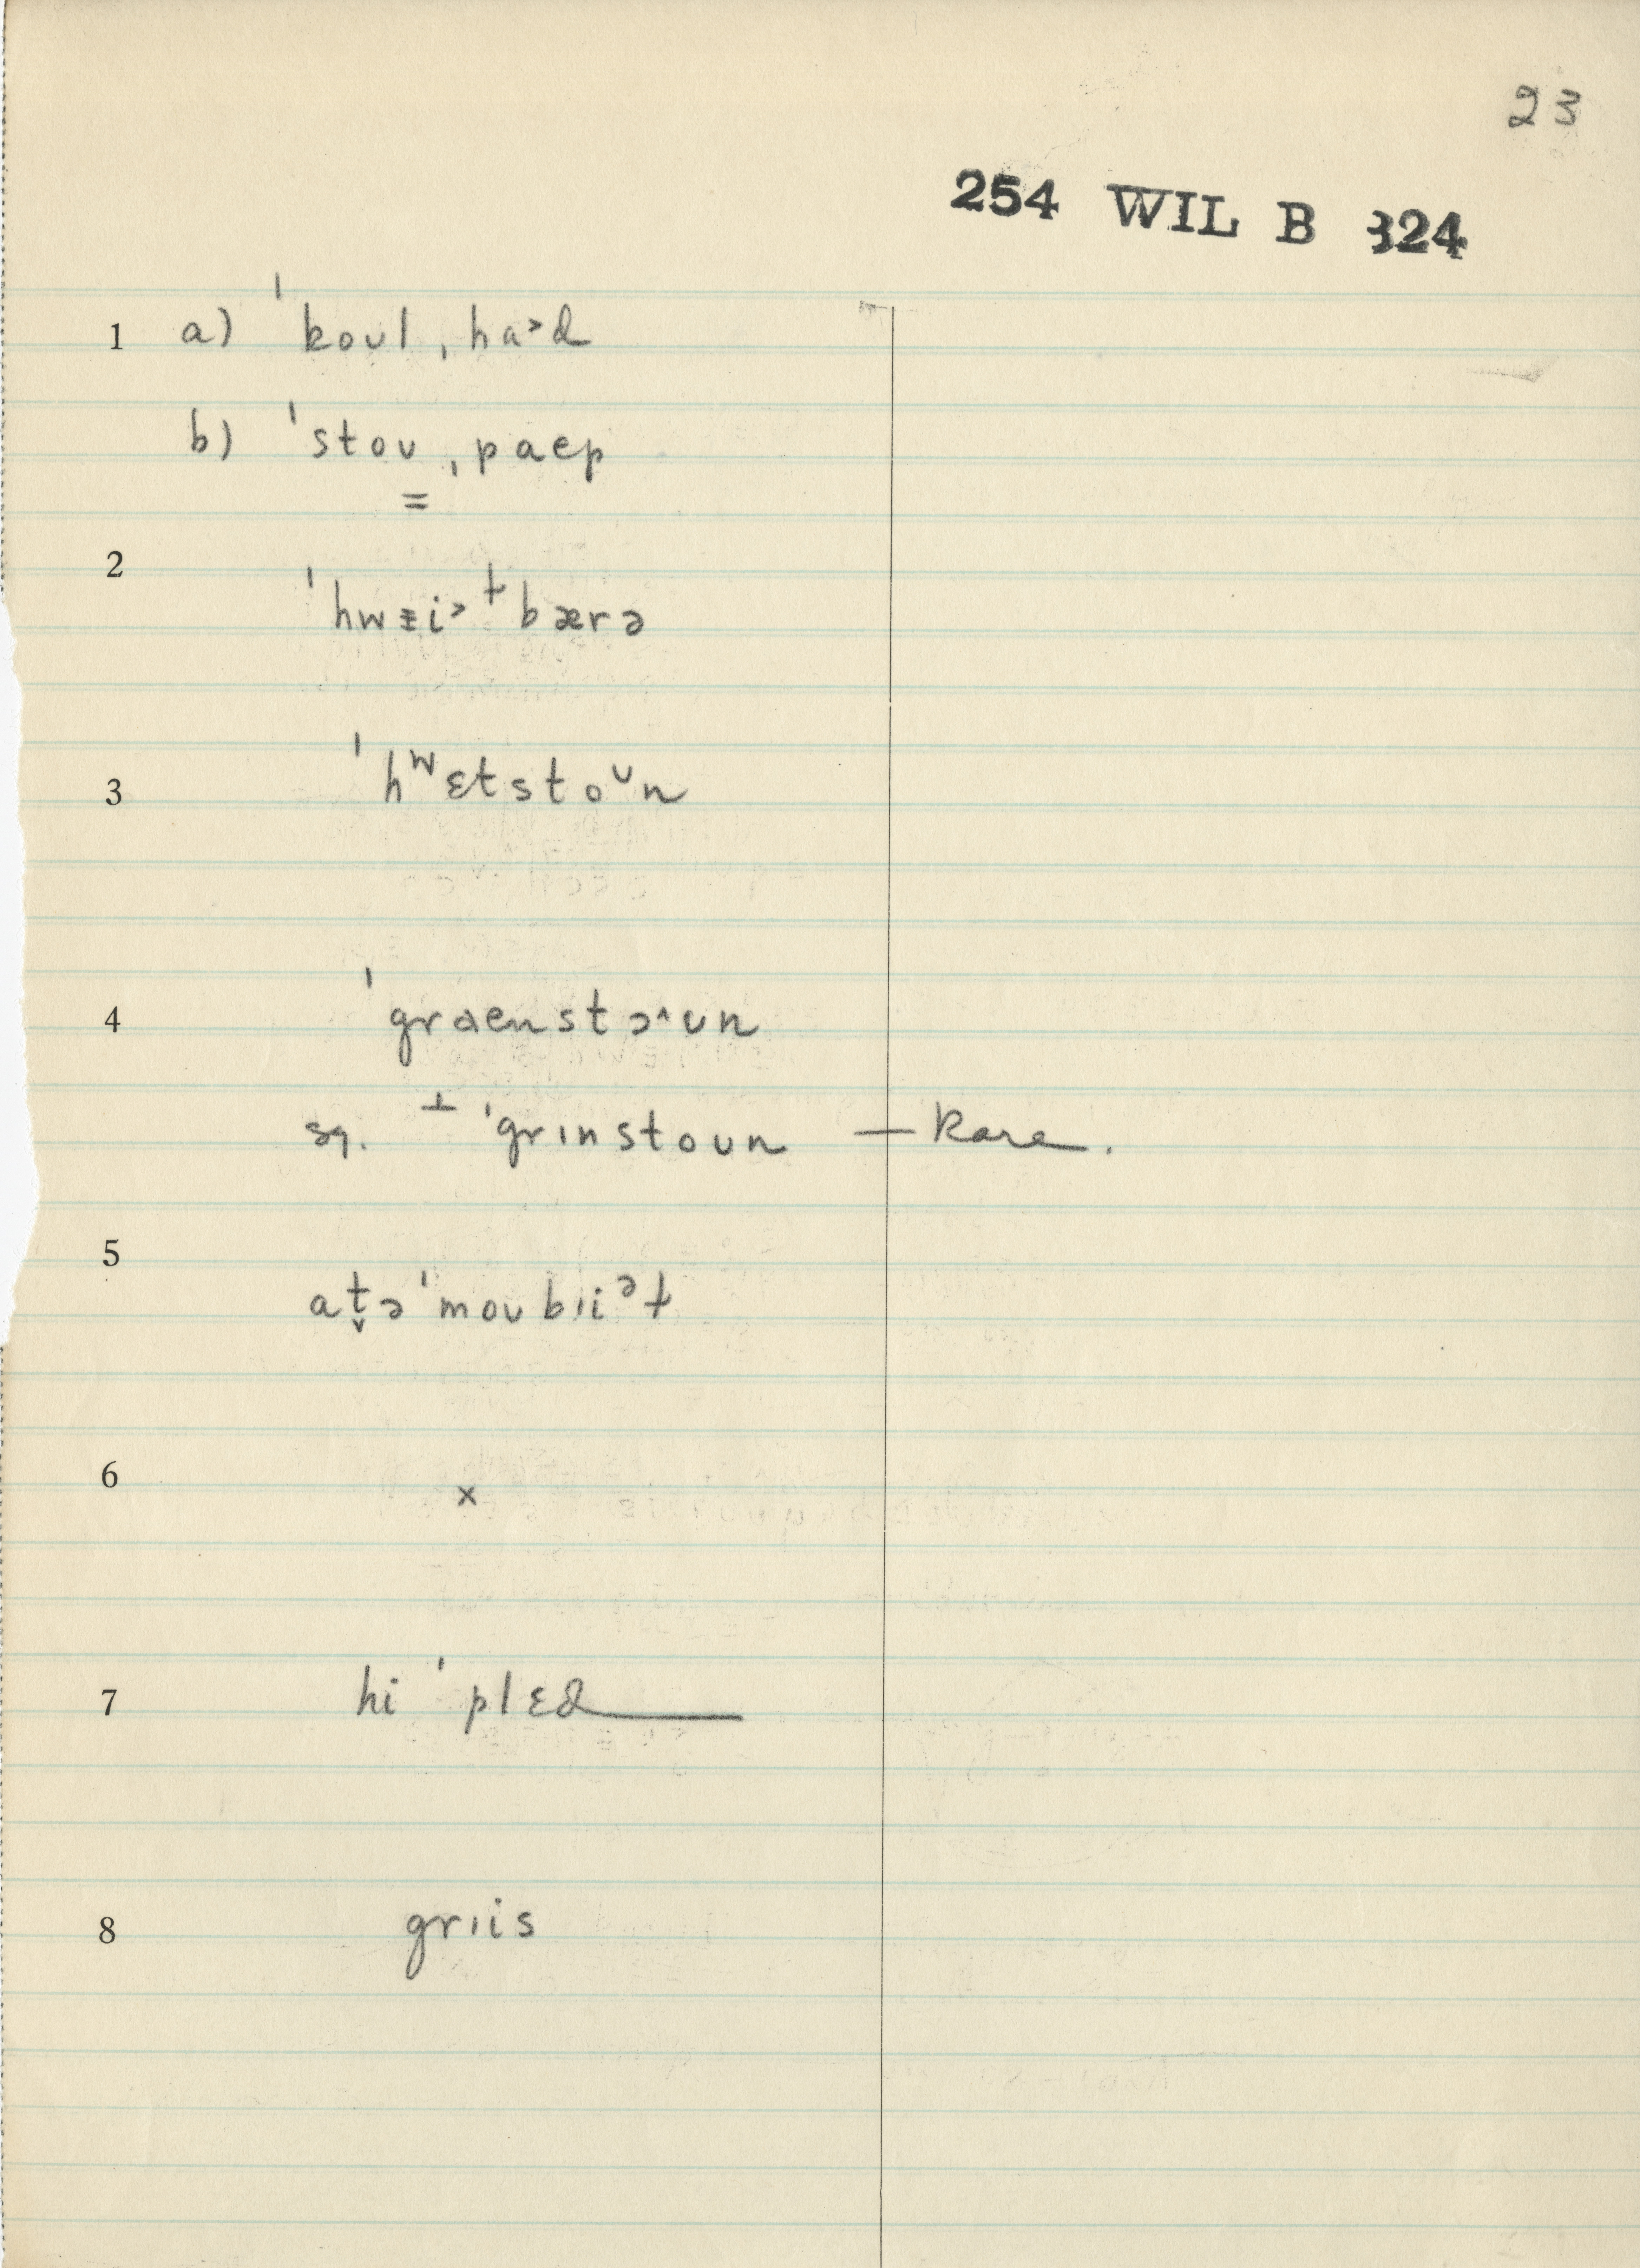 23
254 WIL B 324
1 a) ˈkoʊl ˌha˃d
b) ˈstoʊ ˌpaep
=
2
ˈhwᵻi˃ ⱶbærə
3 ˈhʷɛtstoᶷn
4 ˈgraenstɔ^ʊn
sq. ⊥ ˈgrɪnstoʊn — Rare.
5
at̬ə ˈmoʊbɪiᵊɫ
6 ×
7 hi ˈplɛd
8 grɪis